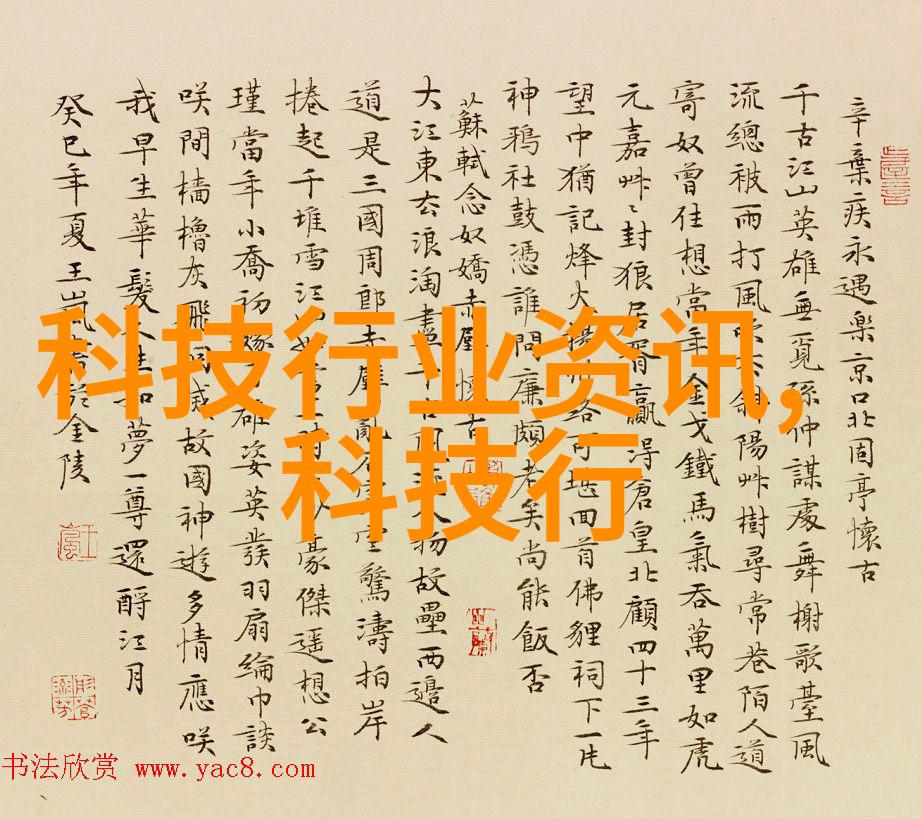 辛棄疾永遇楽京口北固亭懷古
千古江山英雄無覓孫仲謀處舞榭歌臺風
流總被雨打風吹去斜陽艸樹尋常巷陌人道
寄奴曾住想當年金戈鐵馬氣吞萬里如虎
元嘉艸〻封狼居胥贏得倉皇北顧四十三年
望中猶記烽火揚州路可堪回首佛貍祠下一片
神鴉社鼓憑誰問廉頗老矣尚能飯否
蘇軾念奴嬌赤壁懷古
大江東去浪淘盡千古風流人物故壘西邊人
道是三國周郎赤壁亂石穿空驚濤拍岸
捲起千堆雪江山如多時少豪傑遥想公
瑾當年小喬初嫁了雄姿英發羽扇綸巾談
咲間檣櫓灰飛滅故國神遊多情應咲
我早生華髮人生如夢一尊還酹江月
癸巳年夏王嵐書於金陵
科技行业资讯,
科技行
书法欣赏 www.yac8.com